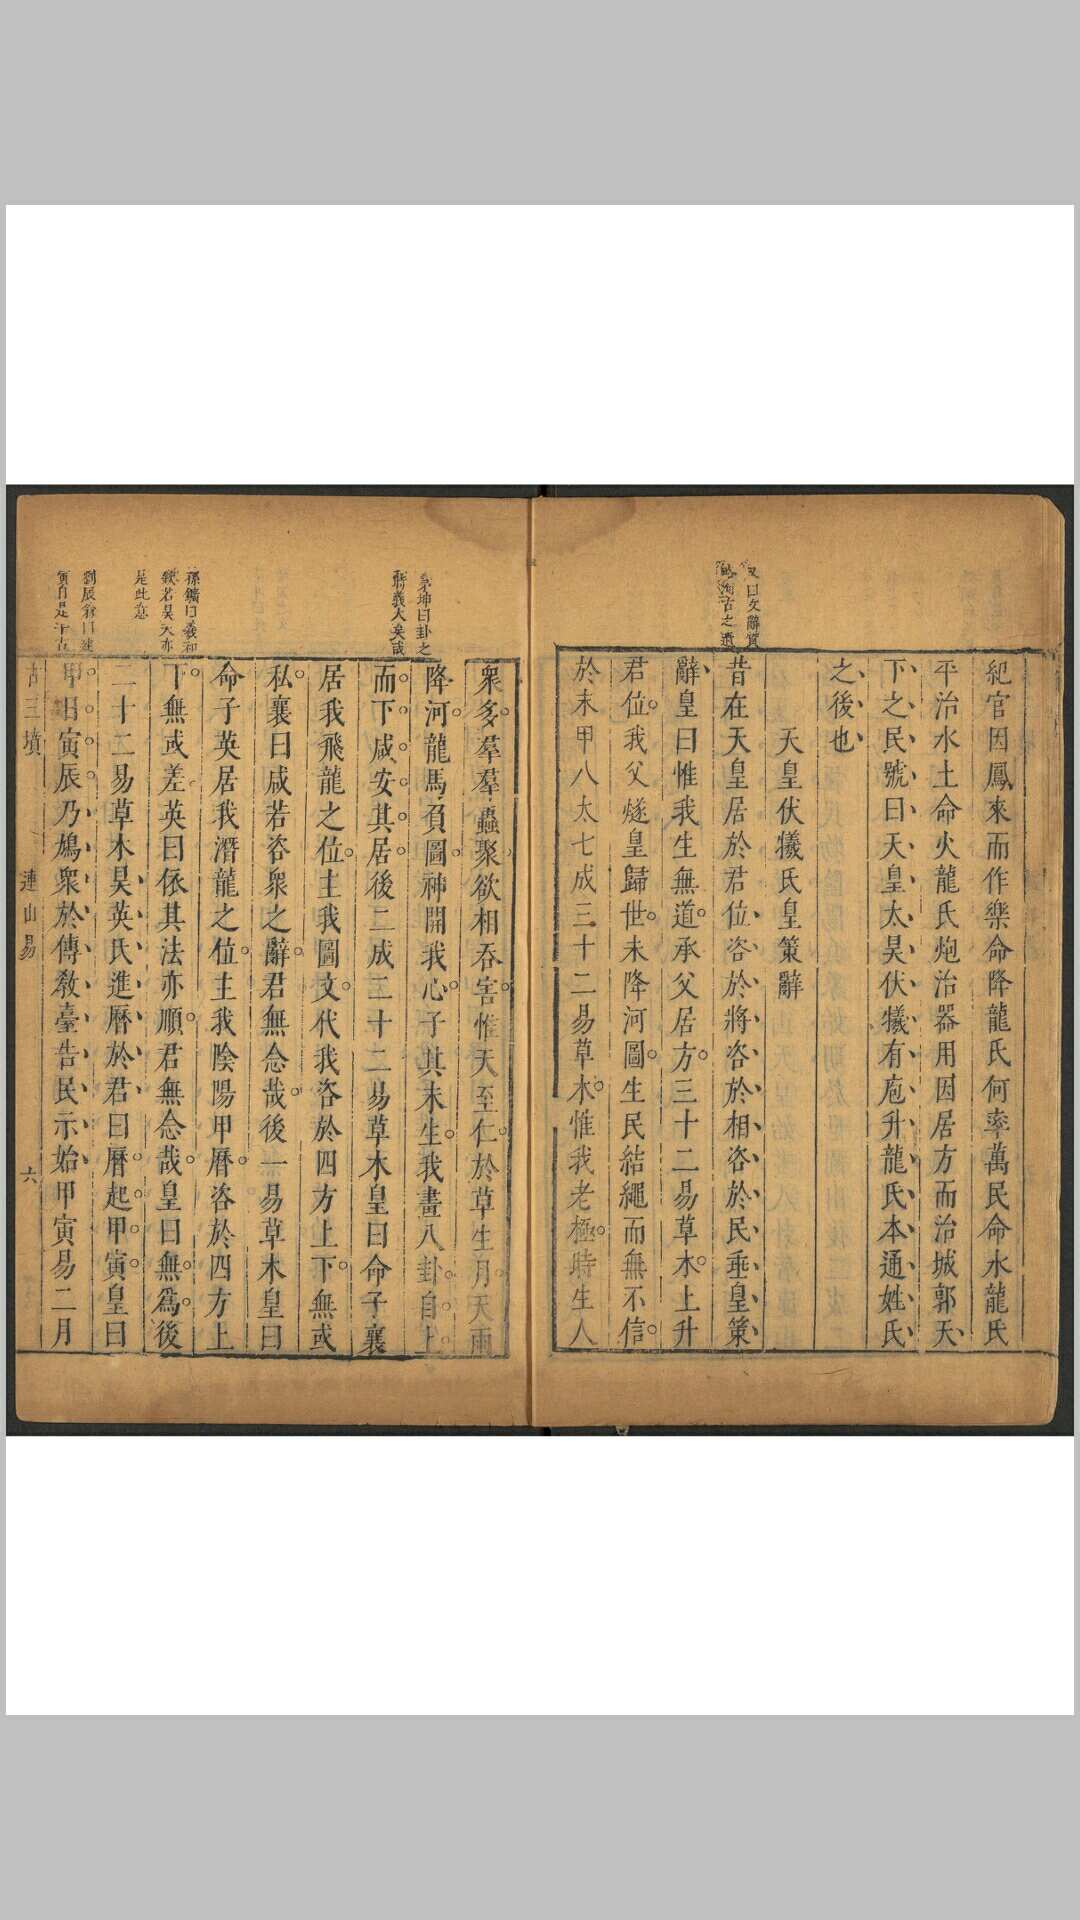 紀官因鳳來而作樂命降龍氏何率萬民命水龍氏
平治水土命火龍氏炮治器用因居方而治城郭天
下之民號曰天皇太昊伏犧有庖升龍氏本通姓氏
之後也
天皇伏犧氏皇策辭
又曰文辭質
洵古之遺
昔在天皇居於君位咨於將咨於相咨於民垂皇策
辭皇曰惟我生無道承父居方三十二易草木上升
君位我父燧皇歸世未降河圖生民結繩而無不信
於末甲八太七成三十二易草木惟我老極時生人
眾多羣羣蟲聚欲相吞害惟天至仁於草生月天雨
坤曰卦之
義大矣哉
降河龍馬負圖神開我心子其未生我畫八卦自上
而下咸安其居後二成二十二易草木皇曰命子襄
居我飛龍之位主我圖文代我咨於四方上下無或
私襄曰咸若咨眾之辭君無念哉後一易草木皇曰
命子英居我潛龍之位主我陰陽甲曆咨於四方上
孫鑛曰羲和
欽若昊天亦
是此意
下無或差英曰依其法亦順君無念哉皇曰無爲後
二十二易草木昊英氏進曆於君曰曆起甲寅皇曰
劉辰翁曰建
寅自是千古
甲日寅辰乃鳩眾於傳教臺告民示始甲寅易二月
古三墳 連山易 六